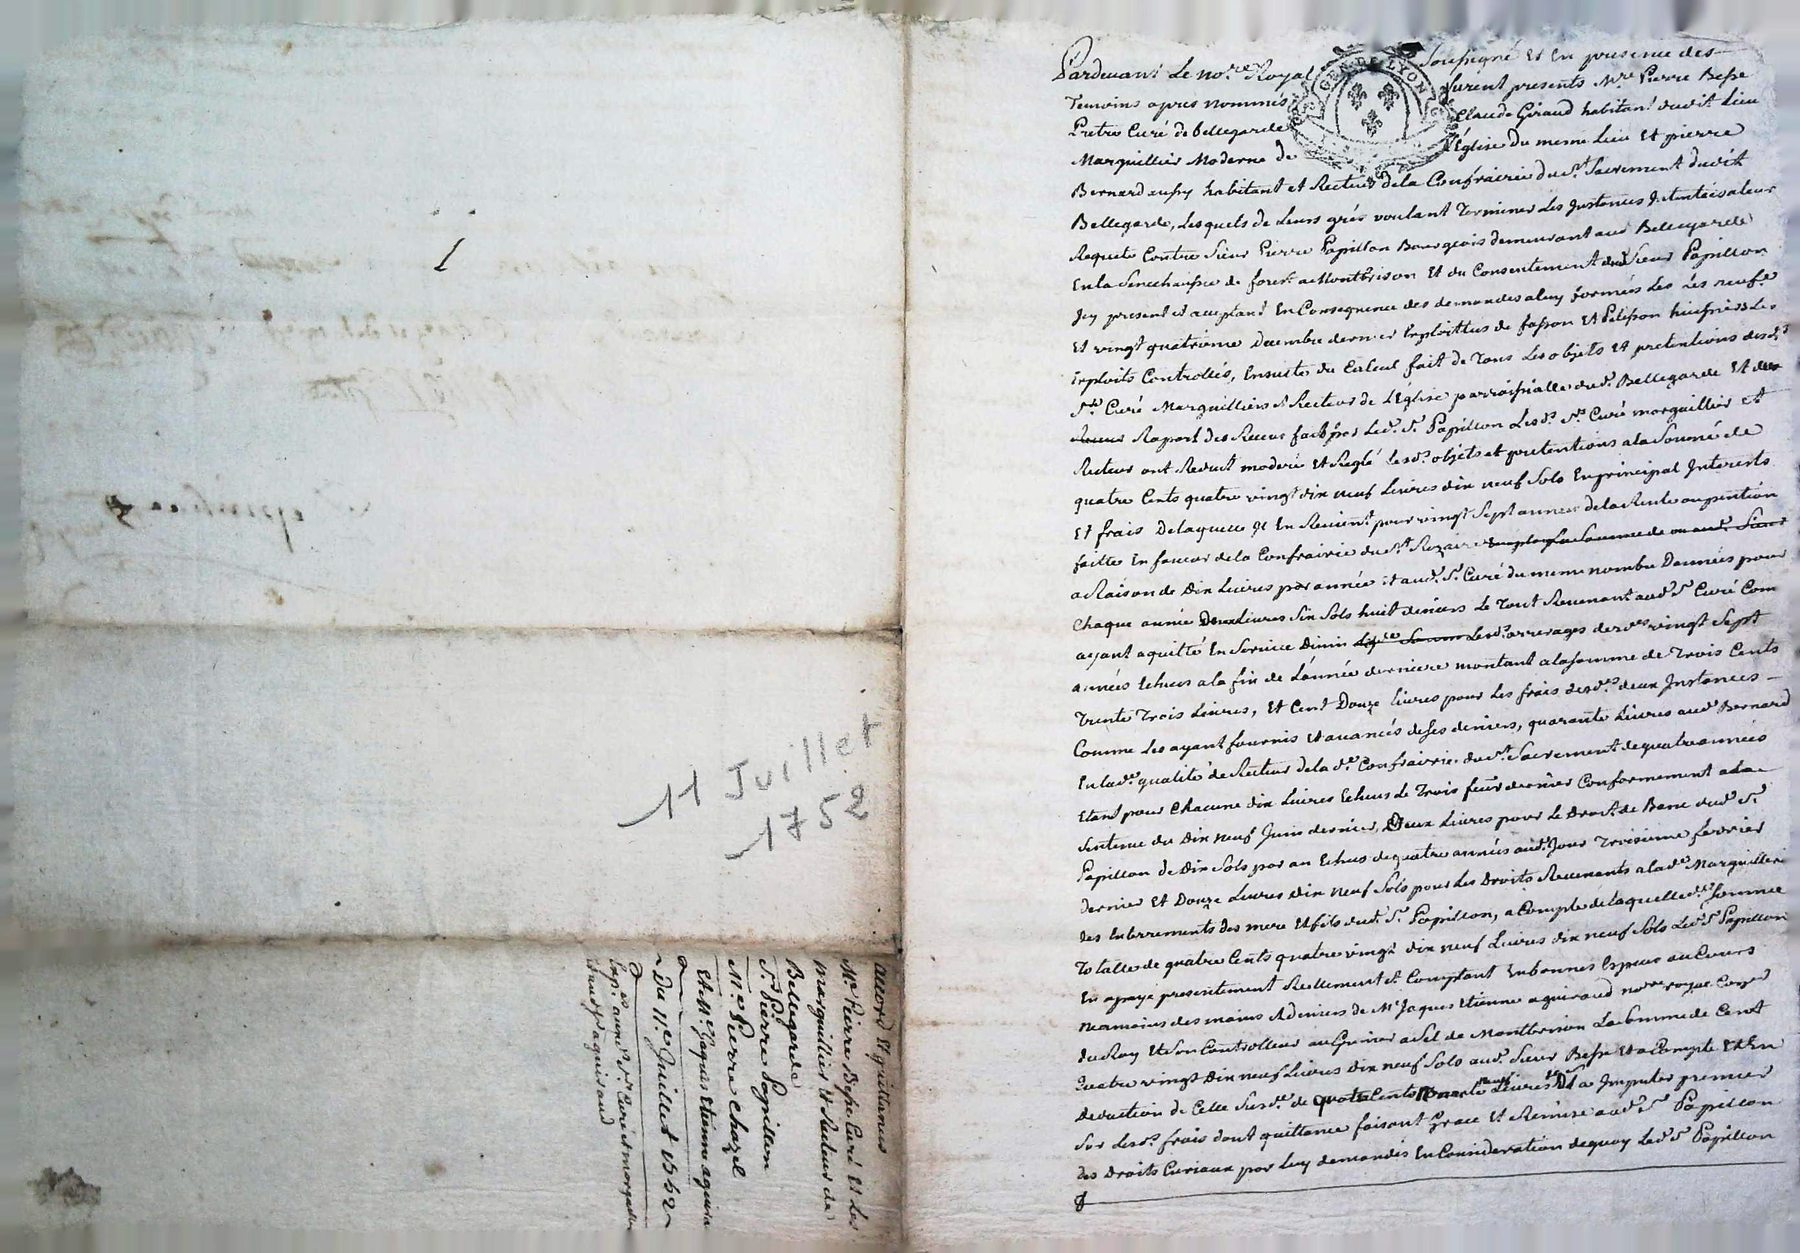 1
11 Juillet
1752
accord et quittances
Mre Pierre Besse Curé et Les
marguillier et Recteur de
Bellegarde
Sr. Pierre Papillon
Mre Pierre chazel
et Me Jaques Etienne aguiraud
Du 11e Juillet 1752
GEN DE LYON
Pardevant Le nore Royal Soussigné et En presence des
Temoins apres nommés furent presents Mre Pierre Besse
Pretre Curé de bellegarde Claude Giraud habitant dudit Lieu
Marguillier Moderne de L'Église du meme Lieu et pierre
Bernard aussy habitant et Recteur de la Confrairie du St Sacrement dudit
Bellegarde, Lesquels de Leurs grés voulant Terminer Les Instances Intentées a leur
Requete Contre Sieur Pierre Papillon Bourgeois demeurant aud Bellegarde
En la Senechaussee de forest a Montbrison et du Consentement dud Sieur Papillon
Icy present et acceptant En Consequence des demandes a luy formées Les Les neufe
Et vingt quatrieme Decembre dernier Exploittés de fasson et Pelisson huissiers Les
Exploits Controllés, Ensuite du Calcul fait de Tous Les objets et pretentions desds
Srs Curé Marguilliers et Recteur de L'Église parroissialle dud. Bellegarde et
Raport des Recus faits par Led. Sr. Papillon Lesds. Srs Curé marguillier et
Recteur ont Reduit moderé et Reglé lesds objets et pretentions a la Somme de
quatre Cents quatre vingt dix neuf Livres dix neuf Sols En principal Interests
Et frais De laquelle Il En Revient pour vingt Sept années de la Rente ou pention
faitte En faveur de la Confrairie du St Rozaire Somme de
a Raison de Dix Livres par année et aud. Sr. Curé du meme nombre Dannées pour
Chaque année Deux Livres Six Sols huit deniers Le Tout Revenant aud Sr Curé Com
ayant aquitté En Service Divin Lesds arrerages desdes vingt Sept
années Echues a la fin de L'année derniere montant a la somme de Trois Cents
Trente Trois Livres, et Cent Douze Livres pour Les frais desdes deux Instances
Comme Les ayant fournis et avancés de ses deniers, quarante Livres aud Bernard
En lade qualité de Recteur de lade Confrairie du St. Sacrement de quatre années
Etant pour Chacune dix Livres Echues Le Trois feur dernier Conformement a la
Sentence du Dix neuf Juin dernier, Deux Livres pour Le Droit de Banc dud Sr
Papillon de Dix Sols par an Echus de quatre années aud. Jour Troisieme fevrier
dernier et Douze Livres dix neuf Sols pour Les Droits Revenants a lade Marguillerie
des Enterrements des mere et fils dud. Sr Papillon, a Compte de laquelle de Somme
Totalle de quatre Cents quatre vingt dix neuf Livres dix neuf Sols Led Sr Papillon
En a payé presentement Reellement et Comptant En bonnes Especes au Cours
neamoins des mains et deniers de Me Jaques Etienne aguiraud nore royal
du Roy et Son Controlleur au Grenier a Sel de Montbrison La Somme de Cent
quatre vingt Dix neuf Livres dix neuf Sols aud. Sieur Besse Et a Compte Et En
Deduction de Celle Susde de quatre Cents Livres a Imputer premier
Sur Lesds frais dont quittance faisant Grace et Remise aud Sr Papillon
des Droits Curiaux par Luy demandés En Consideration dequoy Led Sr Papillon